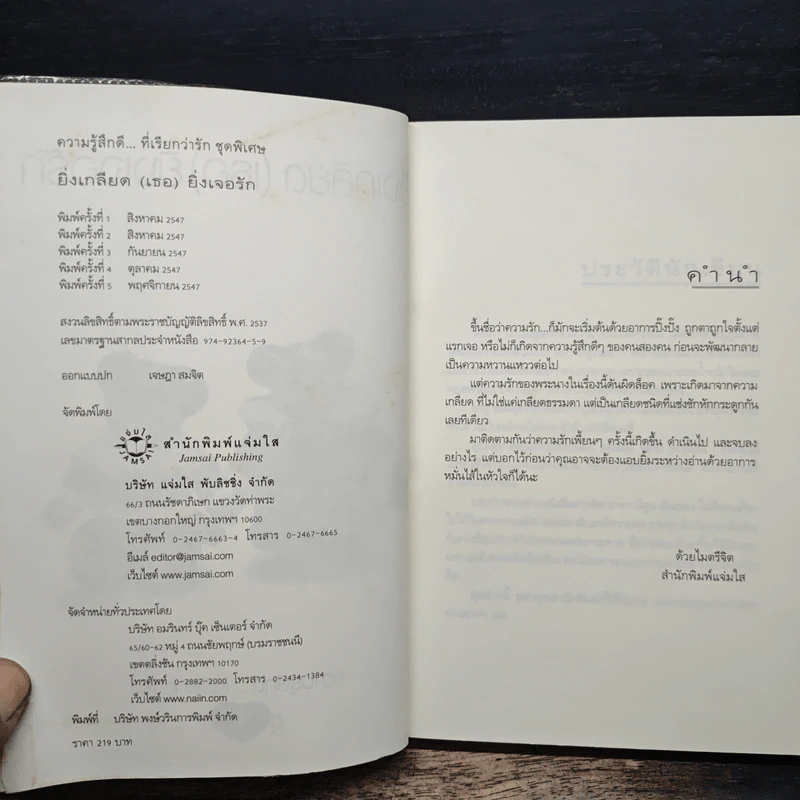 ความรู้สึกดี... ที่เรียกว่ารัก ชุดพิเศษ
ยิ่งเกลียด (เธอ) ยิ่งเจอรัก
พิมพ์ครั้งที่ 1 สิงหาคม 2547
พิมพ์ครั้งที่ 2 สิงหาคม 2547
พิมพ์ครั้งที่ 3 กันยายน 2547
พิมพ์ครั้งที่ 4 ตุลาคม 2547
พิมพ์ครั้งที่ 5 พฤศจิกายน 2547
สงวนลิขสิทธิ์ตามพระราชบัญญัติลิขสิทธิ์ พ.ศ. 2537
เลขมาตรฐานสากลประจำหนังสือ 974-92364-5-9
ออกแบบปก เจษฎา สมจิต
จัดพิมพ์โดย
แจ่มใส
JAMSAI
สำนักพิมพ์แจ่มใส
Jamsai Publishing
บริษัท แจ่มใส พับลิชชิ่ง จำกัด
66/3 ถนนรัชดาภิเษก แขวงวัดท่าพระ
เขตบางกอกใหญ่ กรุงเทพฯ 10600
โทรศัพท์ 0-2467-6663-4 โทรสาร 0-2467-6665
อีเมล์ editor@jamsai.com
เว็บไซต์ www.jamsai.com
จัดจำหน่ายทั่วประเทศโดย
บริษัท อมรินทร์ บุ๊ค เซ็นเตอร์ จำกัด
65/60-62 หมู่ 4 ถนนชัยพฤกษ์ (บรมราชชนนี)
เขตตลิ่งชัน กรุงเทพฯ 10170
โทรศัพท์ 0-2882-2000 โทรสาร 0-2434-1384
เว็บไซต์ www.naiin.com
พิมพ์ที่ บริษัท พงษ์วรินการพิมพ์ จำกัด
ราคา 219 บาท
คำนำ
ขึ้นชื่อว่าความรัก...ก็มักจะเริ่มต้นด้วยอาการปิ๊งปั๊ง ถูกตาถูกใจตั้งแต่
แรกเจอ หรือไม่ก็เกิดจากความรู้สึกดีๆ ของคนสองคน ก่อนจะพัฒนากลาย
เป็นความหวานแหววต่อไป
แต่ความรักของพระนางในเรื่องนี้ดันผิดล็อค เพราะเกิดมาจากความ
เกลียด ที่ไม่ใช่แค่เกลียดธรรมดา แต่เป็นเกลียดชนิดที่แช่งชักหักกระดูกกัน
เลยทีเดียว
มาติดตามกันว่าความรักเพี้ยนๆ ครั้งนี้เกิดขึ้น ดำเนินไป และจบลง
อย่างไร แต่บอกไว้ก่อนว่าคุณอาจจะต้องแอบยิ้มระหว่างอ่านด้วยอาการ
หมั่นไส้ในหัวใจก็ได้นะ
ด้วยไมตรีจิต
สำนักพิมพ์แจ่มใส